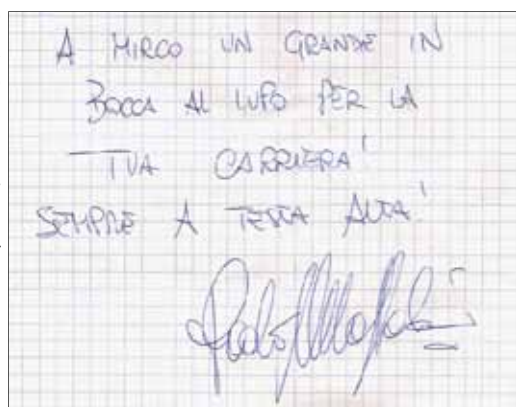 A MIRCO UN GRANDE IN
BOCCA AL LUPO PER LA
TUA CARRIERA!
SEMPRE A TESTA ALTA!